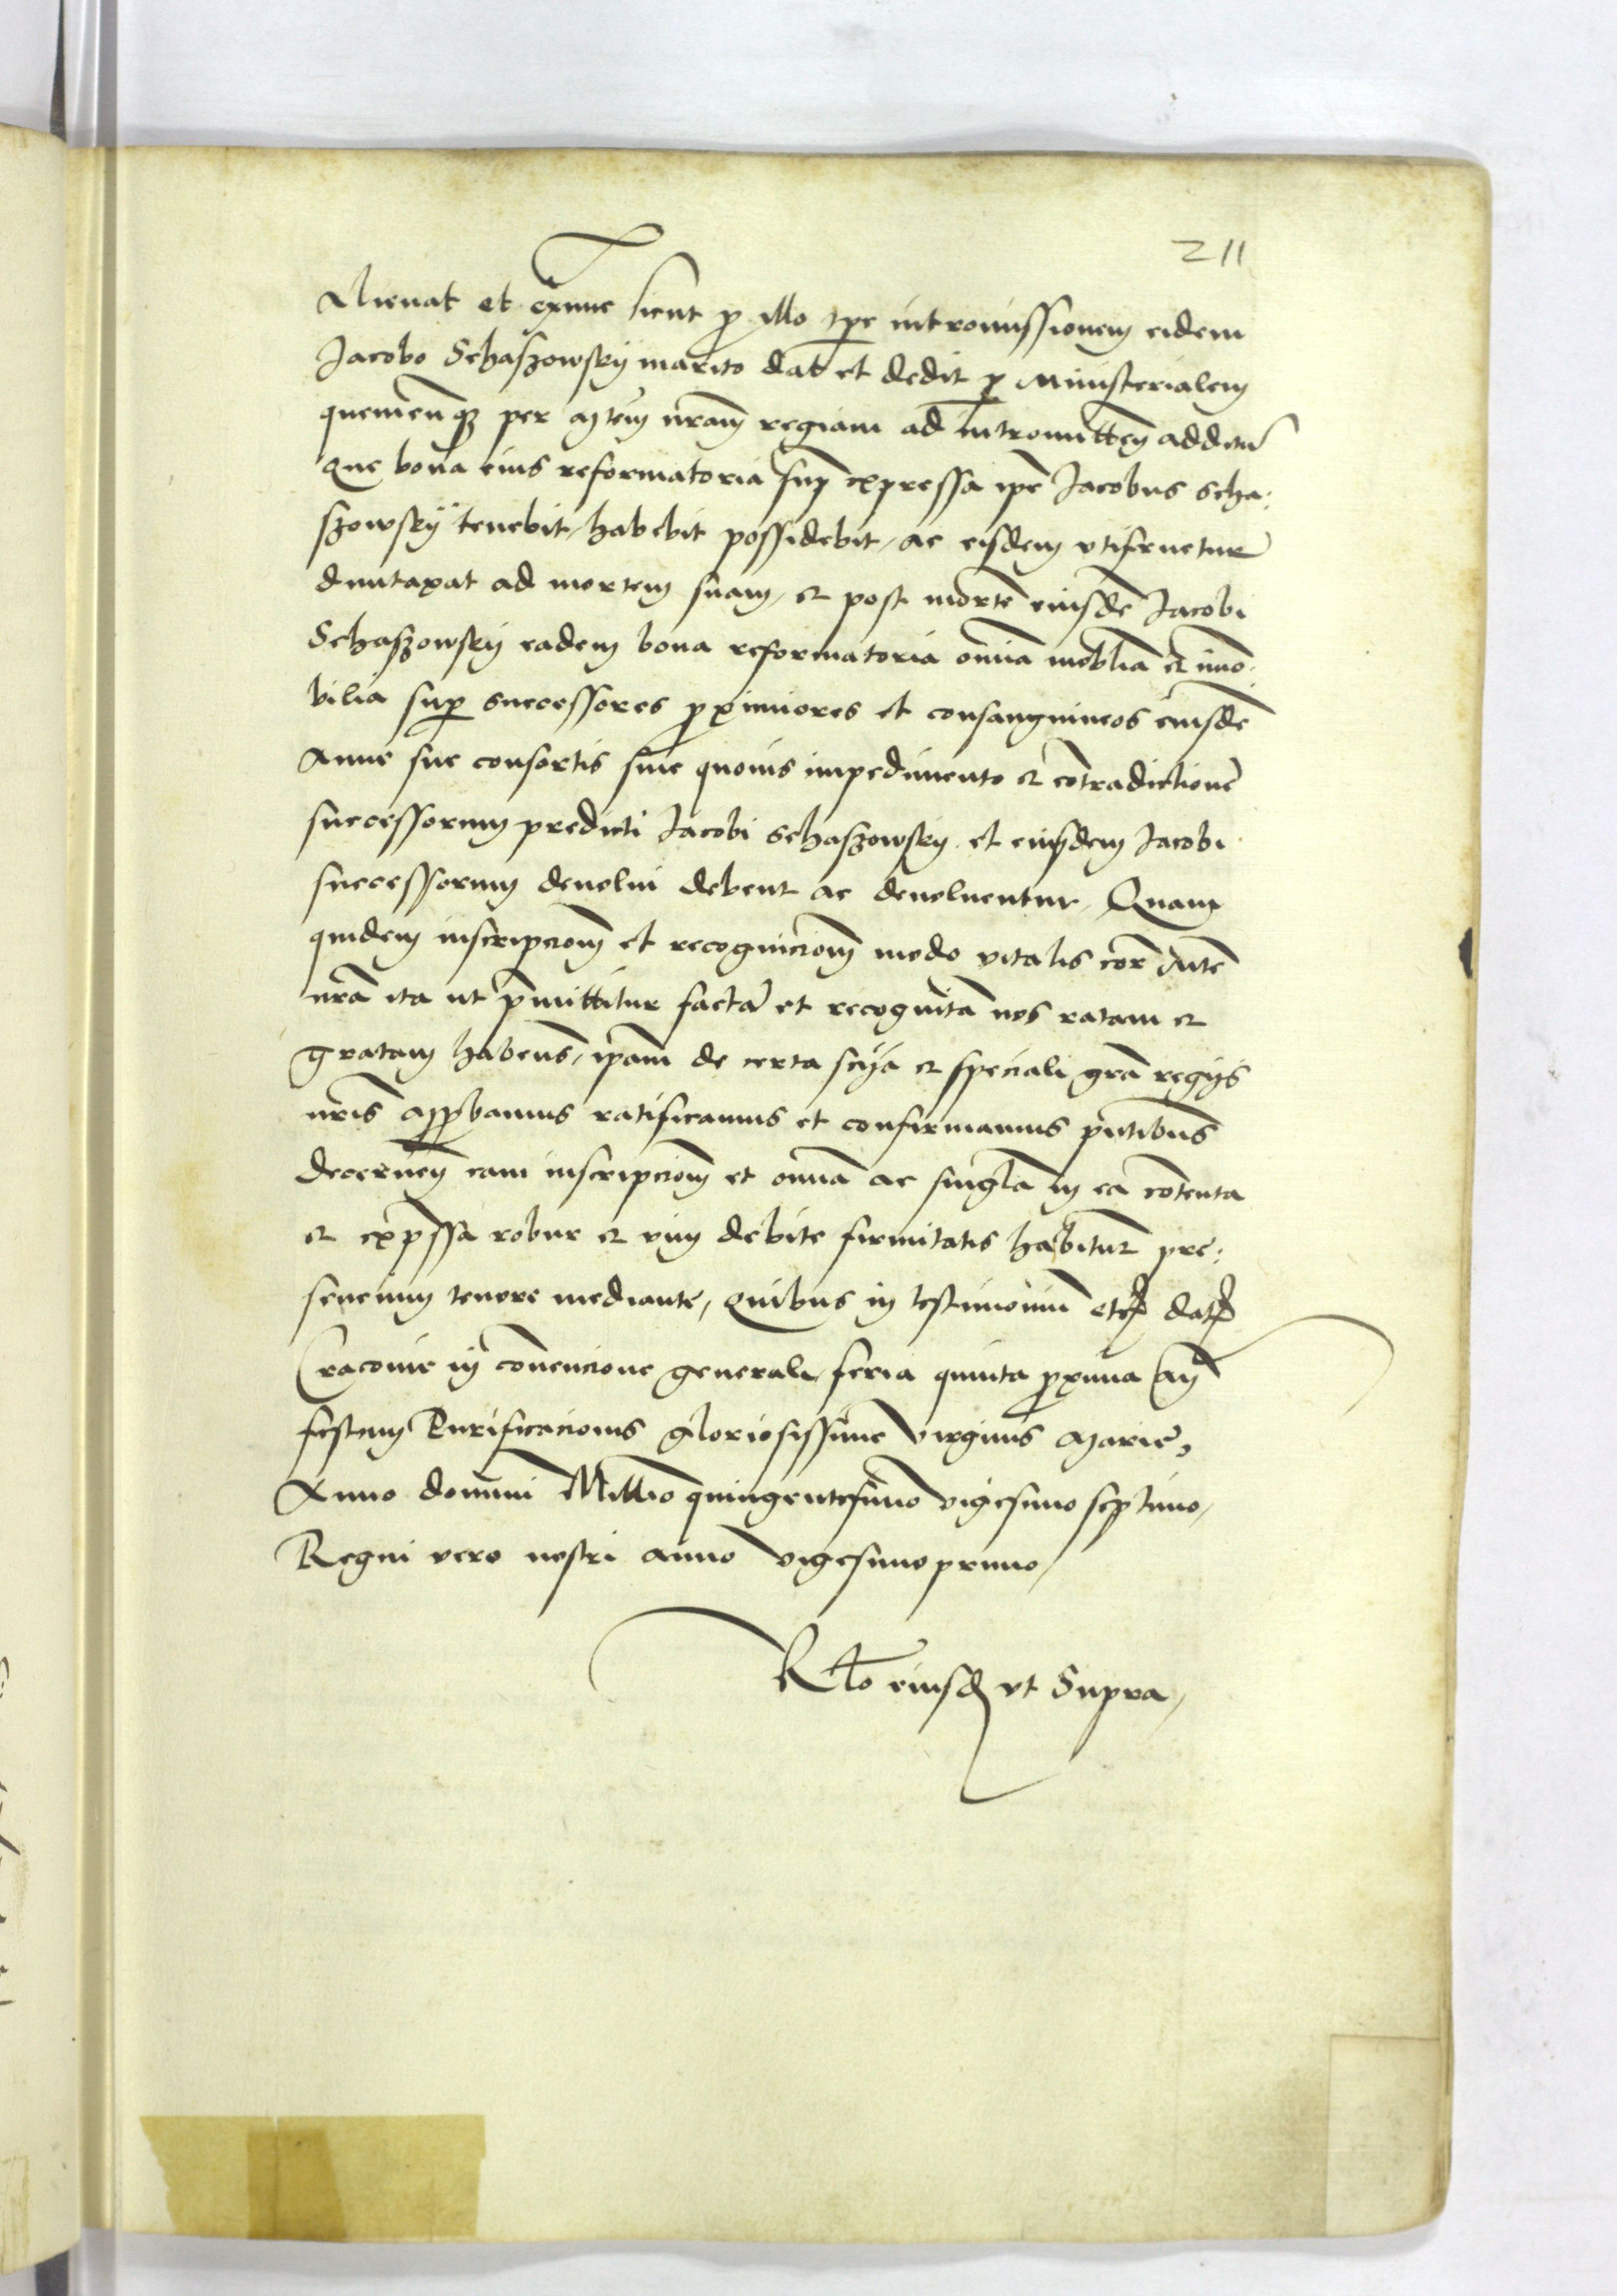 211
Alienat et extunc sicut ꝓ illo tp̄e intromissionem eidem
Jacobo Schaszowskÿ marito dat et dedit ꝑ Ministerialem
quemcunqꝫ per M̄tem n̄ram regiam ad intromittend̄ additū
Que bona eius reformatoria sup̄ expressa ip̄e Jacobus Scha:
szowskÿ tenebit, habebit possidebit, ac eisdem vtifruetur
duntaxat ad mortem suam, et post mortē eiusdē Jacobi
Schaszowskÿ eadem bona reformatoria om̄ia mob̄lia et imo:
bilia suꝑ successores ꝓximiores et consanguineos eiusdē
Anne sue consortis sine quouis impedimento et cōtradictione
successorum predicti Jacobi Schaszowskÿ et eiusdem Jacobi
successorum deuolui debent ac deuoluentur, Quam
quidem inscripcionē et recognicionē modo vitalis corā M̄te
n̄ra ita ut p̄mittitur factā et recognitā nos ratam et
gratam habentes, ip̄am de certa sc̄ia et speciali gr̄a regijs
n̄ris app̄robamus ratificamus et confirmamus p̄ntibus
decernen̄ eam inscripcionē et om̄ia ac singl̄a in ea cōtenta
et exp̄ssa robur et vim debite firmitatis habitur̄ pre:
sencium tenore mediante, Quibus in testimoniū etc̄ dat̄
Cracouie in conuencione generali feria quinta ꝓxima an̄
festum Purificacionis gloriosissime virginis Marie,
Anno domini Mill̄io quingentesimo vigesimo septimo,
Regni vero nostri anno vigesimoprimo,
R̄lo eiusd̄ vt Supra,